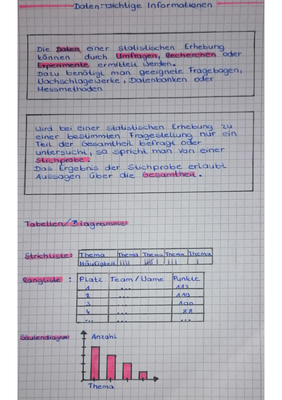 Daten - wichtige Informationen
Die Daten einer statistischen Erhebung
können durch Umfragen, Recherchen oder
Experimente ermittelt werden.
Dazu benötigt man geeignete Fragebögen,
Nachschlagewerke, Datenbanken oder
Messmethoden
Wird bei einer statistischen Erhebung zu
einer bestimmten Fragestellung nur ein
Teil der Gesamtheit befragt oder
untersucht, so spricht man von einer
Stichprobe.
Das Ergebnis der Stichprobe erlaubt
Aussagen über die Gesamtheit.
Tabellen/Diagramme
Strichliste: Thema Thema Thema Thema Thema
Häufigkeit
Rangliste : Platz Team/Name Punkte
1 ...
2 ... 110
3 ... 100
4 ... 88
... ...
Säulendiagramm Anzahl
Thema